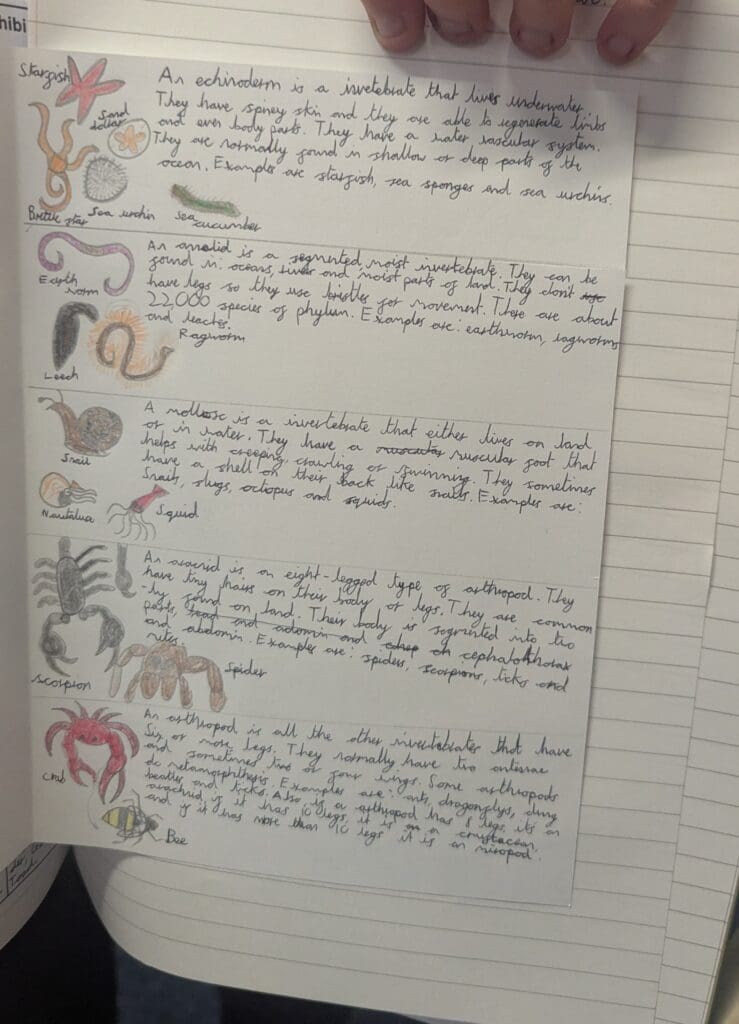 hibi
Starfish
An echinoderm is a invetebrate that lives underwater.
They have spiney skin and they are able to regenerate limbs
Sand
dollar
and even body parts. They have a water vascular system.
They are normally found in shallow or deep parts of the
ocean. Examples are starfish, sea sponges and sea urchins.
Brittle star
Sea urchin
sea
cucumber
An annelid is a segmented moist invertebrate. They can be
found in: oceans, rivers and moist parts of land. They don't use
have legs so they use bristles for movement. There are about
22,000 species of phylum. Examples are: earthworm, ragworms
and leaches.
Earth
worm
Ragworm
Leech
A mollusc is a invertebrate that either lives on land
or in water. They have a muscular muscular foot that
helps with creeping, crawling or swimming. They sometimes
have a shell on their back like snails. Examples are:
Snails, slugs, octopus and squids.
Snail
Nautaluse
Squid
An aracnid is an eight-legged type of arthropod. They
have tiny hairs on their body or legs. They are common
-ly found on land. Their body is segmented into two
parts, head and adomin and cephalothorax
and abdomin. Examples are: spiders, scorpions, ticks and
mites.
Scorpion
Spider
An arthropod is all the other invertebrates that have
Six or more legs. They normally have two antenae
and sometimes two or four wings. Some arthropods
do metamorphthesis. Examples are: ants, dragonflys, dung
beatles and ticks. Also is a arthropod has 8 legs, its an
arachnid if it has 10 legs, it is a crustacean,
and if it has more than 10 legs it is an miropod.
Crab
Bee